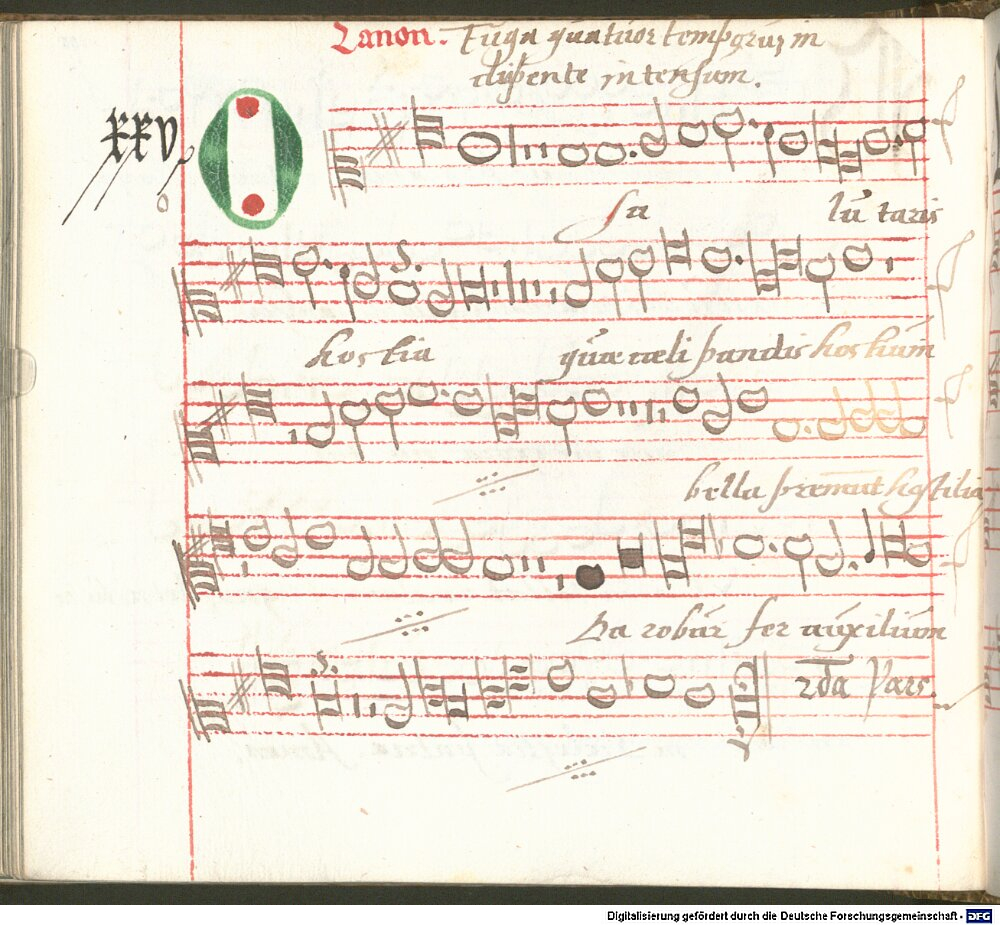 Canon. Fuga quatuor temporum in
dÿpente intensum.
xxv
O
sa lu taris
hostia quæ cæli pandis hostium
bella premunt hostilia
Da robur fer auxilium
2da Pars.
Digitalisierung gefördert durch die Deutsche Forschungsgemeinschaft - DFG